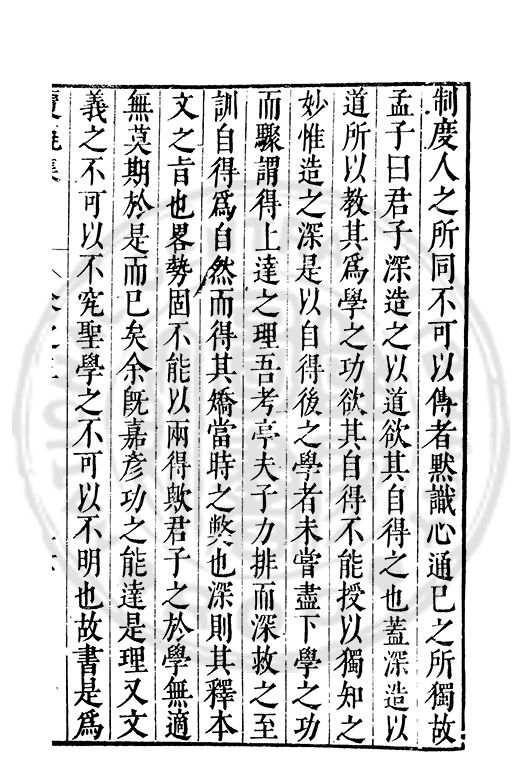 制度人之所同不可以傳者黙識心通已之所獨故
孟子曰君子深造之以道欲其自得之也蓋深造以
道所以教其爲學之功欲其自得不能授以獨知之
妙惟造之深是以自得後之學者未嘗盡下學之功
而驟謂得上達之理吾考亭夫子力排而深救之至
訓自得爲自然而得其矯當時之獘也深則其釋本
文之㫖也畧勢固不能以兩得歟君子之於學無適
無莫期於是而已矣余旣嘉彥功之能達是理又文
義之不可以不究聖學之不可以不明也故書是爲